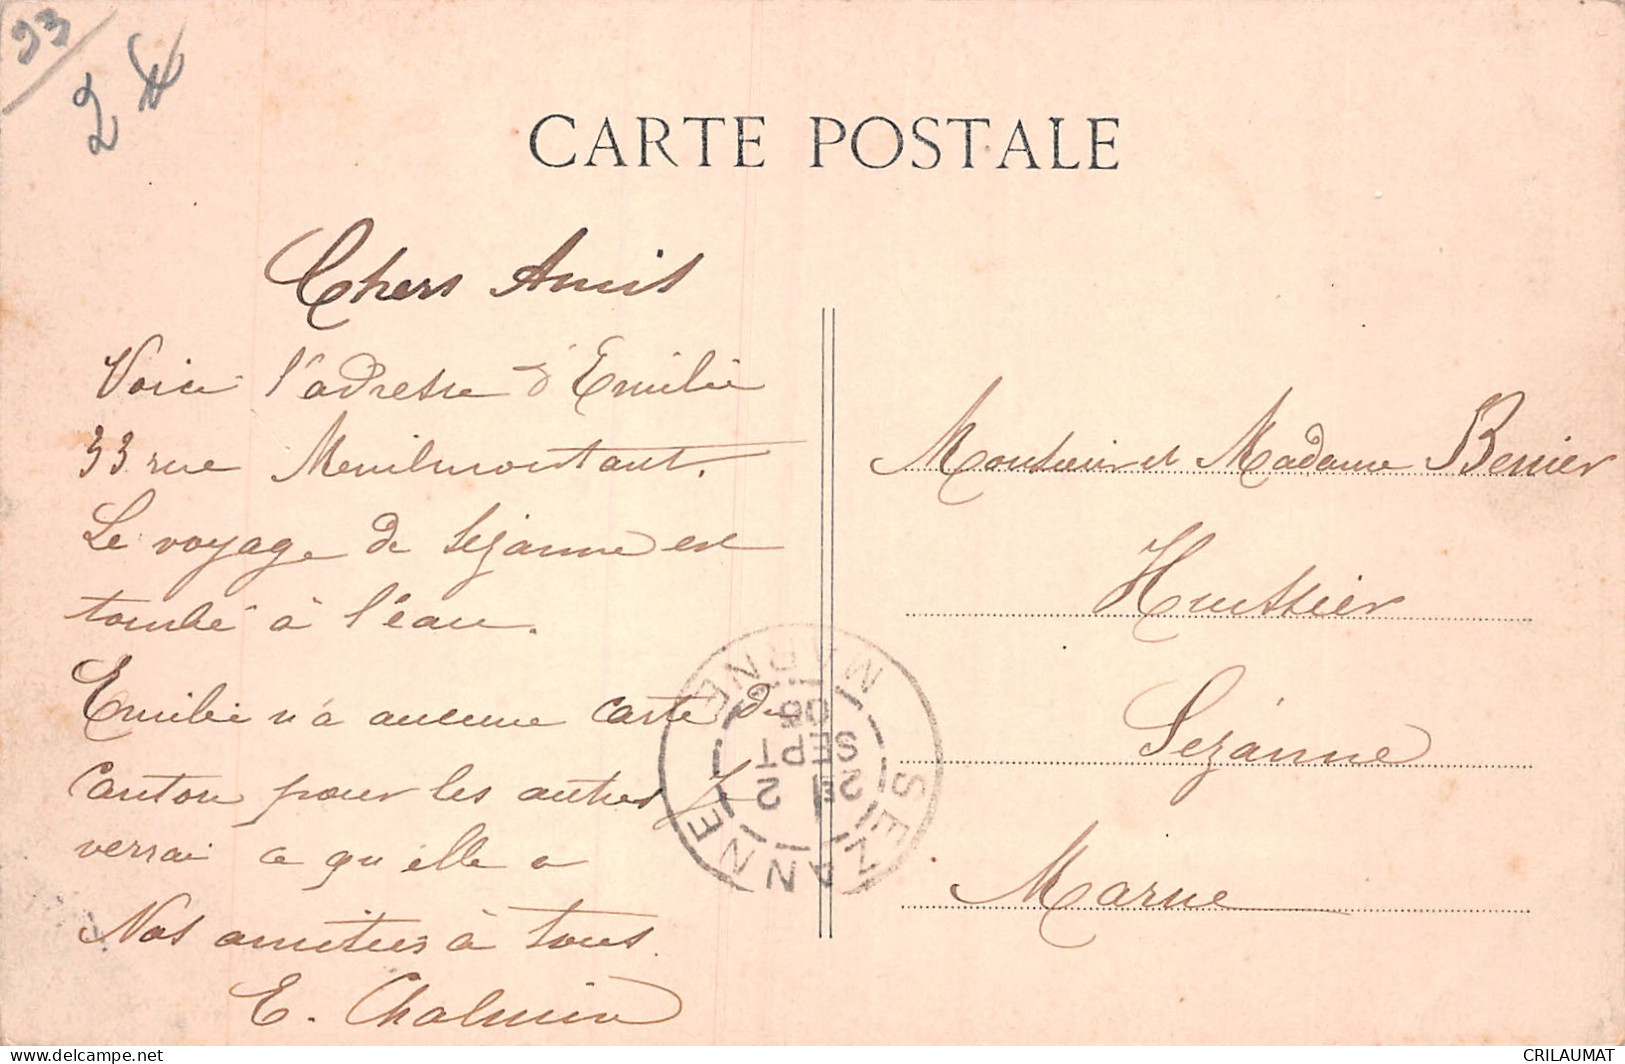 93
2
CARTE POSTALE
Chers Amis
Voici l'adresse d'Emilie
33 rue Menilmontant.
Le voyage de Sézanne est
tombé à l'eau.
Emilie n'a aucune carte de
Canton pour les autres je
verrai ce qu'elle a
Nos amitiés à tous
E. Chalmin
Monsieur et Madame Bernier
Huissier
Sézanne
Marne
SEZANNE
MARNE
2E 2
SEPT
06
www.delcampe.net
CRILAUMAT